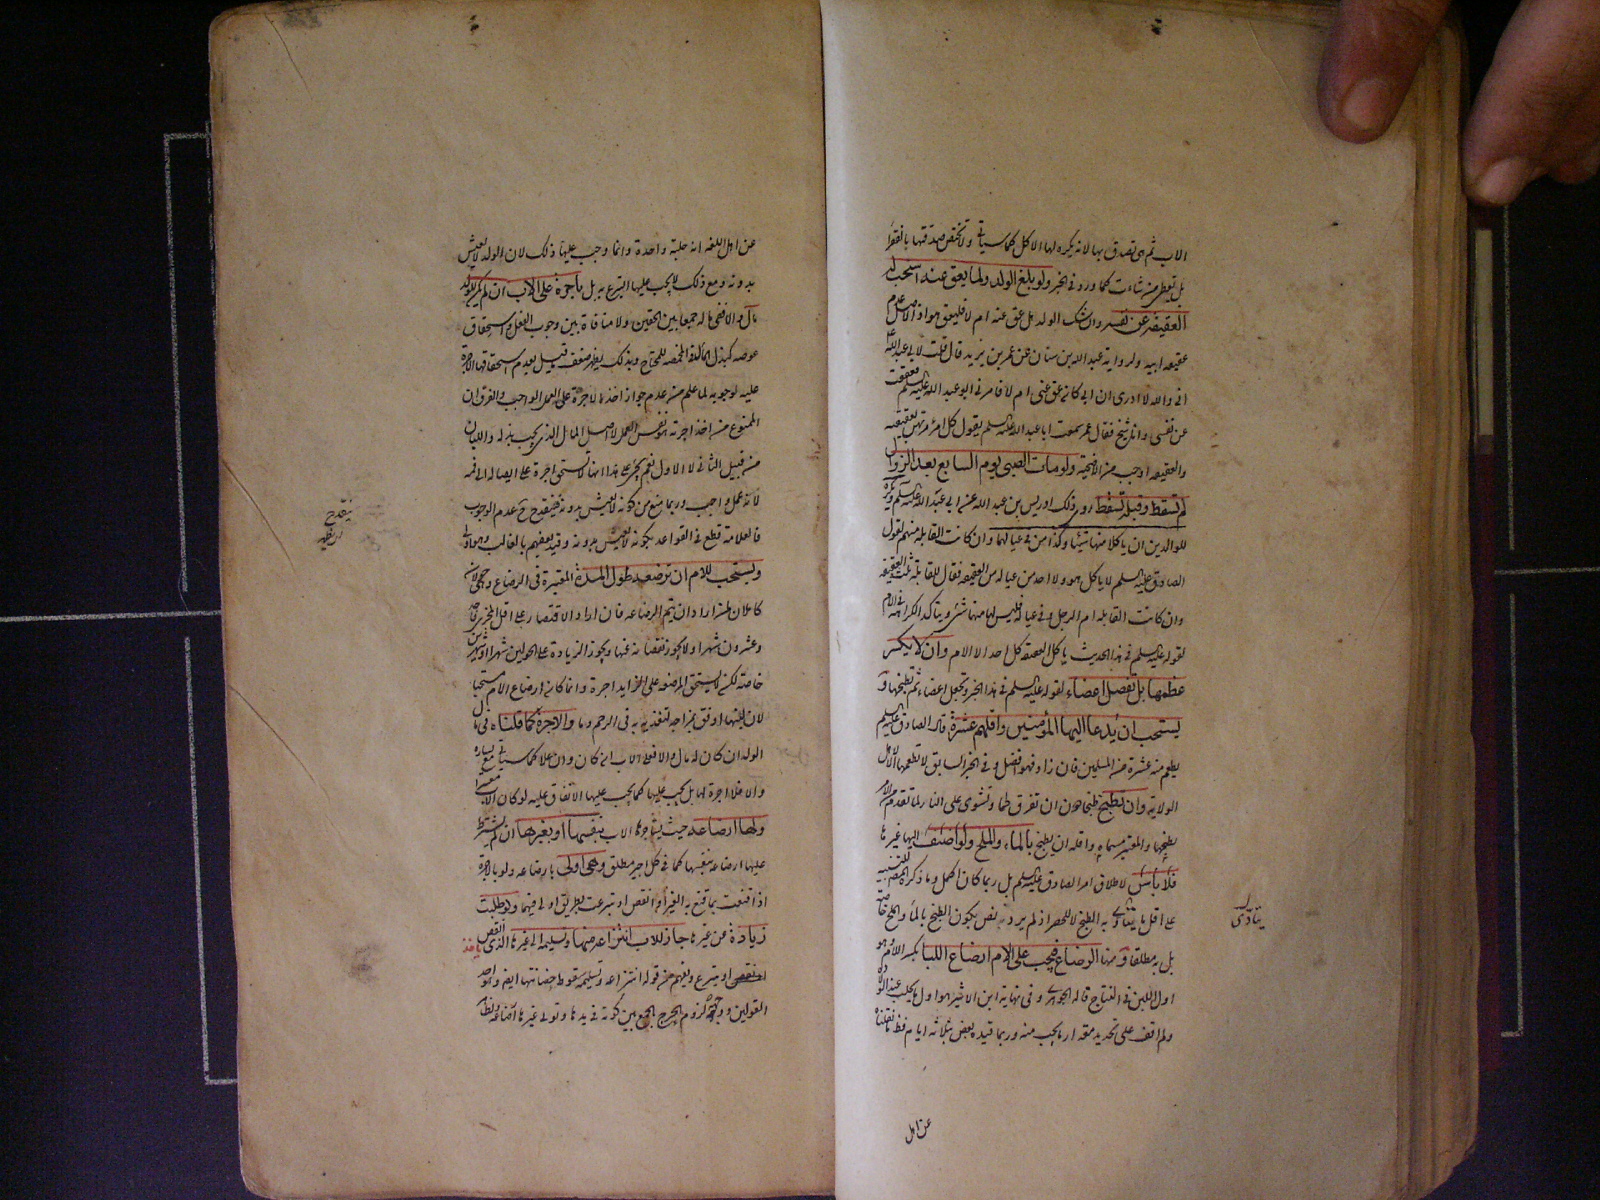 الاب ثم تصدق بها لانه يكره لها الاكل كما سياتي ولا تختص صدقتها بالفقراء
بل تعطى من شاءت كما ورد في الخبر ولو بلغ الولد ولما يعق عنه استحب له
العقيقة عن نفسه وان شك الولد هل عق عنه ام لا فليعق هو اذ الاصل عدم
عقيقة ابيه ولرواية عبد الله بن سنان عن عمر بن يزيد قال قلت لابي عبد الله
اني والله لا ادري ان ابي كان عق عني ام لا فامرني ابو عبد الله عليه السلم فعققت
عن نفسي وانا شيخ فقال عمر سمعت ابا عبد الله عليه السلم يقول كل امرء مرتهن بعقيقته
والعقيقة اوجب من الاضحية ولو مات الصبي يوم السابع بعد الزوال
لم تسقط وقبله تسقط روى ذلك ادريس بن عبد الله عن ابي عبد الله عليه السلم ويكره
للوالدين ان ياكلا منها شيئا وكذا من في عيالهما وان كانت القابلة منهم لقول
الصادق عليه السلم لا ياكل هو ولا احد من عياله من العقيقة فقال للقابلة ثلث العقيقة
وان كانت القابلة ام الرجل او في عياله فليس لها منها شئ ويتاكد الكراهة في الام
لقوله عليه السلم في هذا الحديث ياكل العقيقة كل احد الا الام وان لا يكسر
عظمها بل تفصل اعضاء لقوله عليه السلم في هذا الخبر وتجعل اعضاء ثم تطبخها و
يستحب ان يدعا اليها المؤمنين واقلهم عشرة قال الصادق عليه السلم
يطعم منه عشرة من المسلمين فان زاد فهو افضل وفي الخبر السابق لا تطعمها الا لاهل
الولاية وان تطبخ طبخا دون ان تفرق لحما او تشوى على النار لما تقدم من الامر
بطبخها والمعتبر مسماه واقله ان يطبخ بالماء والملح ولو اضيف اليها غيرها
فلا باس لاطلاق امر الصادق عليه السلم بل ربما كان اكمل وما ذكره المصنف للتنبيه
على اقل ما يتادى به الطبخ لا للحصر اذ لم يرد نص بكون الطبخ بالماء والملح خاصة
بل به مطلقا ومنها الرضاع فيجب على الام ارضاع اللبا بكسر اللام وهو
اول اللبن في النتاج قاله الجوهري وفي نهاية ابن الاثير هو اول ما يحلب عند الولادة
ولم اقف على تحديد مقدار ما يجب منه وربما قيده بعض بثلاثة ايام وظاهر ما نقلناه
يتادى
عن اهل
عن اهل اللغة انه حلبة واحدة وانما وجب عليها ذلك لان الولد لا يعيش
بدونه ومع ذلك لا يجب عليها التبرع به بل باجرة على الاب ان لم يكن للولد
مال والا ففي ماله جمعا بين الحقين ولا منافاة بين وجوب الفعل واستحقاق
عوضه كبذل المال في المخمصة للمحتاج وبذلك يظهر ضعف ما قيل بعدم استحقاقها الاجرة
عليه لوجوبه لما علم من عدم جواز اخذ الاجرة على العمل الواجب والفرق ان
الممنوع من اخذ اجرته هو نفس العمل لا اصل المال الذي يجب بذله واللبا من
من قبيل الثاني لا الاول نعم يجئ على هذا انها لا تستحق اجرة على ايصاله الى فمه
لانه عمل واجب وربما منع من كونه لا يعيش بدونه فينقدح ح عدم الوجوب
فالعلامة قطع في القواعد بكونه لا يعيش بدونه وقيده بعضهم بالغالب وهو اولى
ويستحب للام ان ترضعه طول المدة المعتبرة في الرضاع وهي حولان
كاملان لمن اراد ان يتم الرضاعة فان اراد الاقتصار على اقل المجزي فاحد
وعشرون شهرا ولا يجوز نقصانه عنها ويجوز الزيادة على الحولين شهرا وشهرين
خاصة لكن لا تستحق المرضعة على الزايد اجرة وانما كان ارضاع الام مستحبا
لان لبنها اوفق بمزاجه لتغذيه به في الرحم دما والاجرة كما قلناه في مال
الولد ان كان له مال والا فعلى الاب ان كان وان علا كما سياتي مع يساره
والا فلا اجرة لها بل يجب عليها كما يجب عليها الانفاق عليه لو كان الاب معسرا
ولها ارضاعه حيث يستاجرها الاب بنفسها او بغيرها ان لم يشترط
عليها ارضاعه بنفسها كما في كل اجير مطلق وهي اولى بارضاعه ولو بالاجرة
اذا قنعت بما قنع به الغير او انقص او تبرعت بطريق اولى فيهما ولو طلبت
زيادة عن غيرها جاز للاب انتزاعه منها وتسليمه الى غيرها الذي ياخذ انقص
او يتبرع ويفهم من قوله انتزاعه وتسليمه سقوط حضانتها ايضا وهو احد
القولين ووجهه لزوم الحرج بالجمع بين كونه في يدها وتولي غيرها ارضاعه ولظاهر
ينقدح